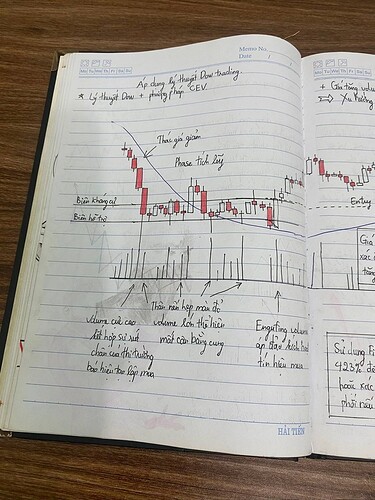 Memo No.
Date / /
Mo Tu We Th Fr Sa Su
Áp dụng lý thuyết Dow trading.
* Lý thuyết Dow + phương pháp CEV.
Thác giá giảm
Phase tích lũy
Biên kháng cự
Biên hỗ trợ
Thân nến hẹp màu đỏ
volume lớn thể hiện
mất cân bằng cung
volume cực cao
kết hợp sự rút
chân của thị trường
báo hiệu tạo lập mua
Engufing volume
áp đảo
tín hiệu mua
HẢI TIẾN
Mo Tu We Th Fr Sa Su
+ Giá tăng volu
⇒ Xu hướng
Entry
Giá
xác
tăng
Sử dụng Fi
423% để
hoặc xác
phối nếu